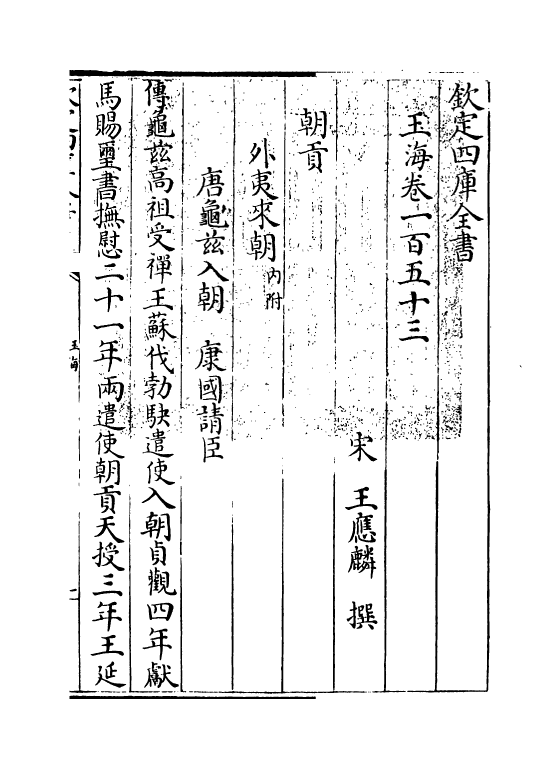 欽定四庫全書
玉海卷一百五十三
宋 王應麟 撰
朝貢
外夷來朝内附
唐龜兹入朝 康國請臣
傳龜兹髙祖受禪王蘇伐勃駃遣使入朝貞觀四年獻
馬賜璽書撫慰二十一年兩遣使朝貢天授三年王延
玉海